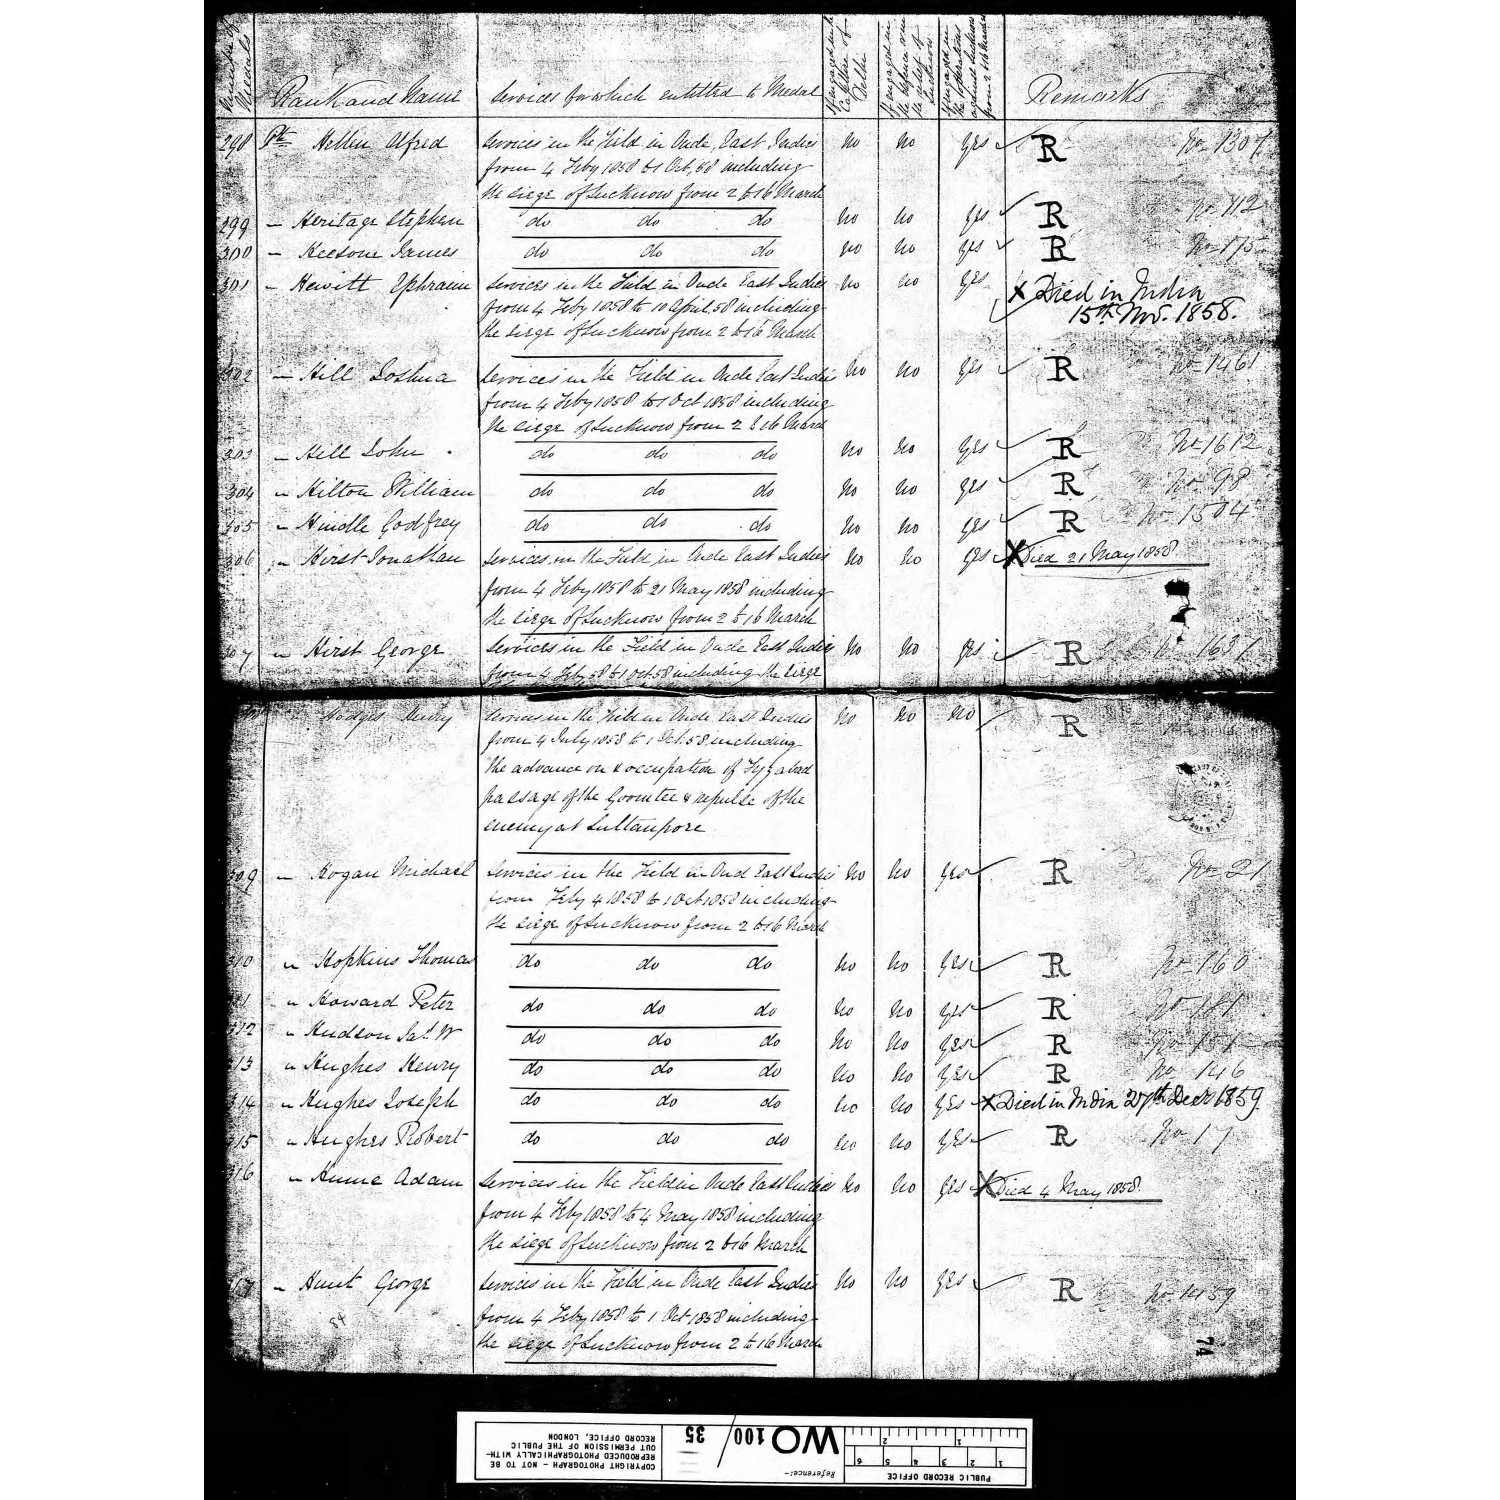 Number of Medals
Rank and Name
Services for which entitled to Medal
If engaged in the Capture of Delhi
If engaged in the defence or in the relief of Lucknow
If engaged in the operations against Lucknow from 2 to 16 March
Remarks
298 Pte Hellen Alfred Services in the Field in Oude, East Indies No No Yes R No 1307
from 4 Feby 1858 to 1 Oct, 58 including
the siege of Lucknow from 2 to 16 March
299 " Heritage Stephen do do do No No Yes R No 112
300 " James do do do No No Yes R No 175
301 " Hewitt Ephraim Services in the Field in Oude East Indies No No Yes X Died in India
from 4 Feby 1858 to 10 April 58 including 15th Nov. 1858.
the siege of Lucknow from 2 to 16 March
302 " Hill Joshua Services in the Field in Oude East Indies No No Yes R No 1461
from 4 Feby 1858 to 1 Oct 1858 including
the siege of Lucknow from 2 to 16 March
303 " Hill John do do do No No Yes R No 1612
304 " Hilton William do do do No No Yes R No 98
305 " Hindle Godfrey do do do No No Yes R No 1504
306 " Hirst Jonathan Services in the Field in Oude East Indies No No Yes X Died 21 May 1858
from 4 Feby 1858 to 21 May 1858 including
the siege of Lucknow from 2 to 16 March
307 " Hirst George Services in the Field in Oude East Indies No No Yes R No 1637
from 4 Feby 58 to 1 Oct 58 including the siege
Hodges Henry Services in the Field in Oude East Indies No No No R
from 4 July 1858 to 1 Oct. 58 including
the advance on & occupation of Fyzabad
passage of the Goomtee & repulse of the
enemy at Sultanpore
309 " Hogan Michael Services in the Field in Oud East Indies No No Yes R No 21
from Feby 4 1858 to 1 Oct 1858 including
the siege of Lucknow from 2 to 16 March
310 " Hopkins Thomas do do do No No Yes R No 160
311 " Howard Peter do do do No No Yes R No 181
312 " Hudson Jas. W do do do No No Yes R No 151
313 " Hughes Henry do do do No No Yes R No 146
314 " Hughes Joseph do do do No No Yes X Died in India 27th Decr 1859.
315 " Hughes Robert do do do No No Yes R No 17
316 " Hume Adam Services in the Field in Oude East Indies No No Yes X Died 4 May 1858.
from 4 Feby 1858 to 4 May 1858 including
the siege of Lucknow from 2 to 16 March
317 " Hunt George Services in the Field in Oude East Indies No No Yes R No 1459
from 4 Feby 1858 to 1 Oct 1858 including
the siege of Lucknow from 2 to 16 March
84
74
PUBLIC RECORD OFFICE
1 2 3 4 5 6
1 2
Reference:-
WO 100/35
COPYRIGHT PHOTOGRAPH - NOT TO BE
REPRODUCED PHOTOGRAPHICALLY WITH-
OUT PERMISSION OF THE PUBLIC
RECORD OFFICE, LONDON